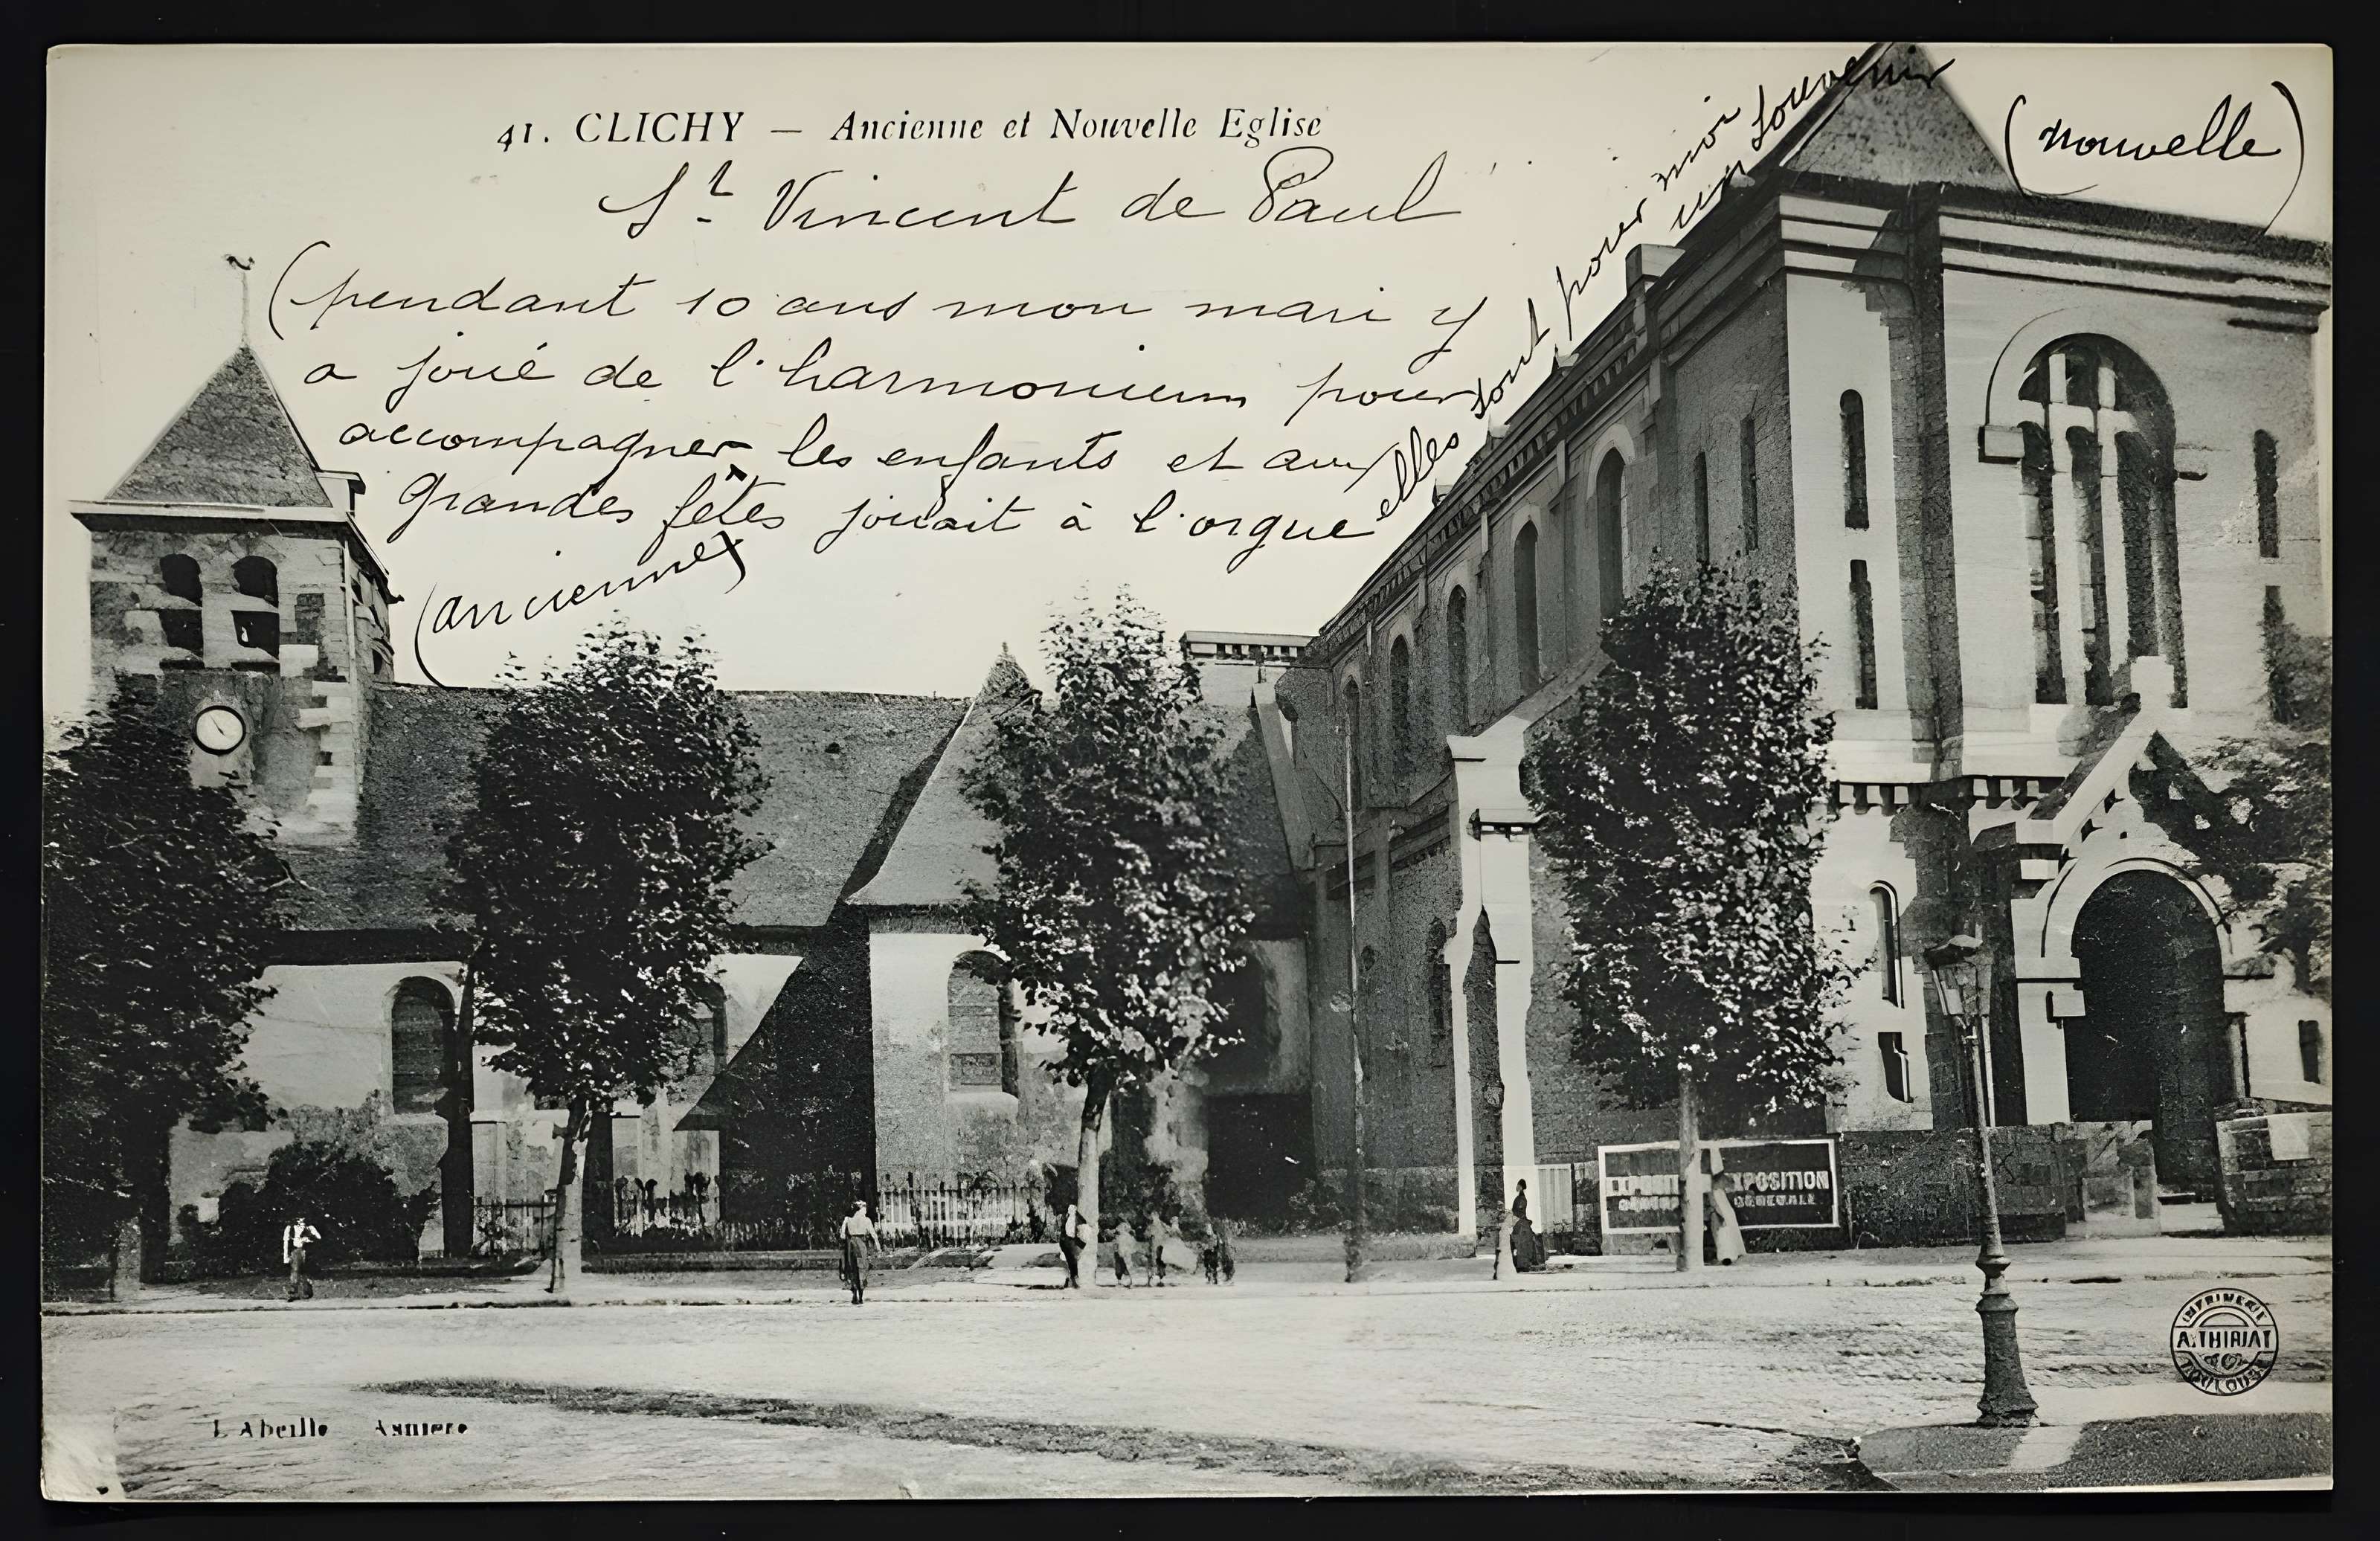 41. CLICHY — Ancienne et Nouvelle Eglise
St Vincent de Paul
(nouvelle)
(pendant 10 ans mon mari y
a joué de l'harmonium pour
accompagner les enfants et aux
grandes fêtes jouait à l'orgue
elles sont pour moi
un souvenir
(ancienne)
EXPOSITION
GÉNÉRALE
IMPRIMERIE
A. THIRIAT
TOULOUSE
L'Abeille Asnière